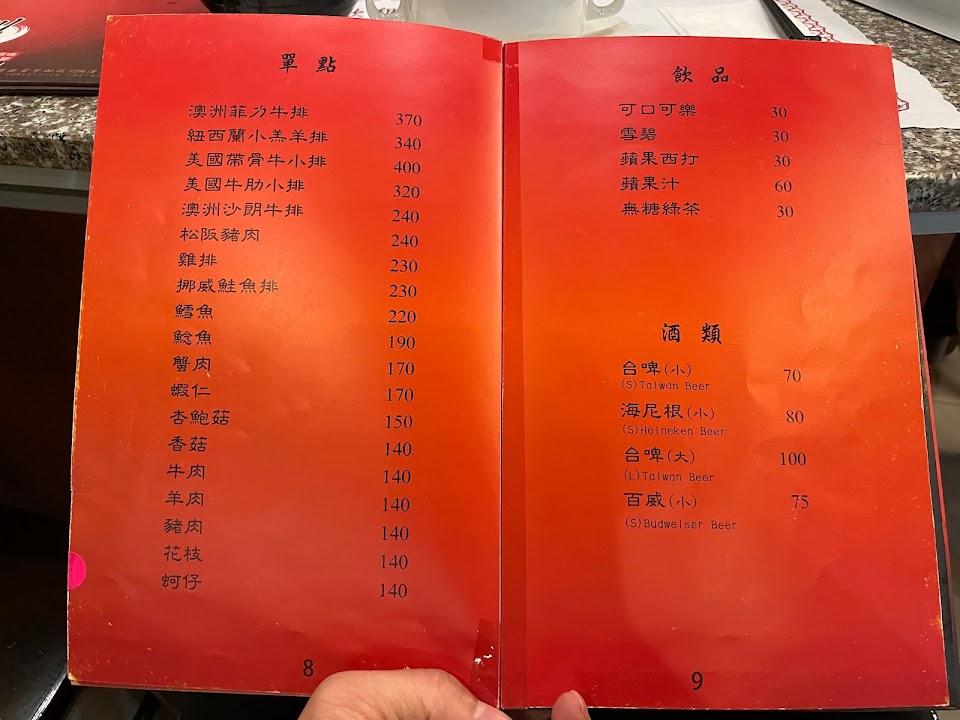 單點
澳洲菲力牛排 370
紐西蘭小羔羊排 340
美國帶骨牛小排 400
美國牛肋小排 320
澳洲沙朗牛排 240
松阪豬肉 240
雞排 230
挪威鮭魚排 230
鱈魚 220
鯰魚 190
蟹肉 170
蝦仁 170
杏鮑菇 150
香菇 140
牛肉 140
羊肉 140
豬肉 140
花枝 140
蚵仔 140
8
飲品
可口可樂 30
雪碧 30
蘋果西打 30
蘋果汁 60
無糖綠茶 30
酒類
台啤(小) 70
(S)Taiwan Beer
海尼根(小) 80
(S)Heineken Beer
台啤(大) 100
(L)Taiwan Beer
百威(小) 75
(S)Budweiser Beer
9